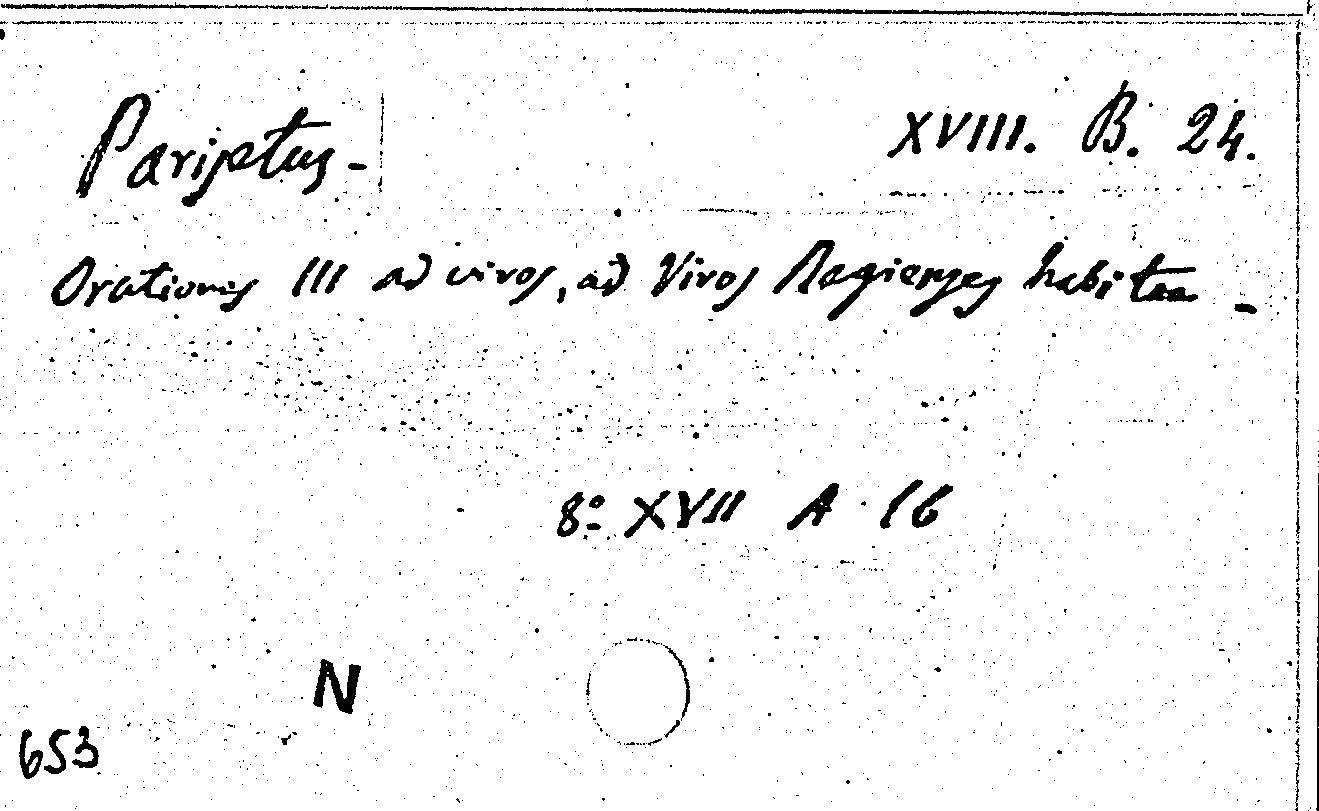 Parisetus - XVIII. B. 24.
Orationes III ad viros, ad Viros Regienses habitae -
8º XVII A 16
N
653